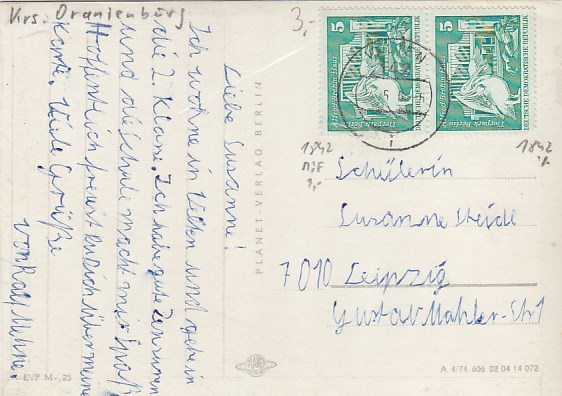 Krs. Oranienburg
3,-
Liebe Susanne!
Ich wohne in Velten und gehe in
die 2. Klasse. Ich habe gute Zensuren
und die Schule macht mir Spaß.
Hoffentlich freust du dich über meine
Karte. Viele Grüße
von Ralf
PLANET-VERLAG BERLIN
EVP M -,25
PLANET
5
DEUTSCHE DEMOKRATISCHE REPUBLIK
Tierpark Berlin
5
DEUTSCHE DEMOKRATISCHE REPUBLIK
Tierpark Berlin
VELTEN
1842
1842
MiF
Schülerin
Susanne Steidl
7010 Leipzig
Gustav-Mahler-Str 1
A 4/74 606 02 04 14 072